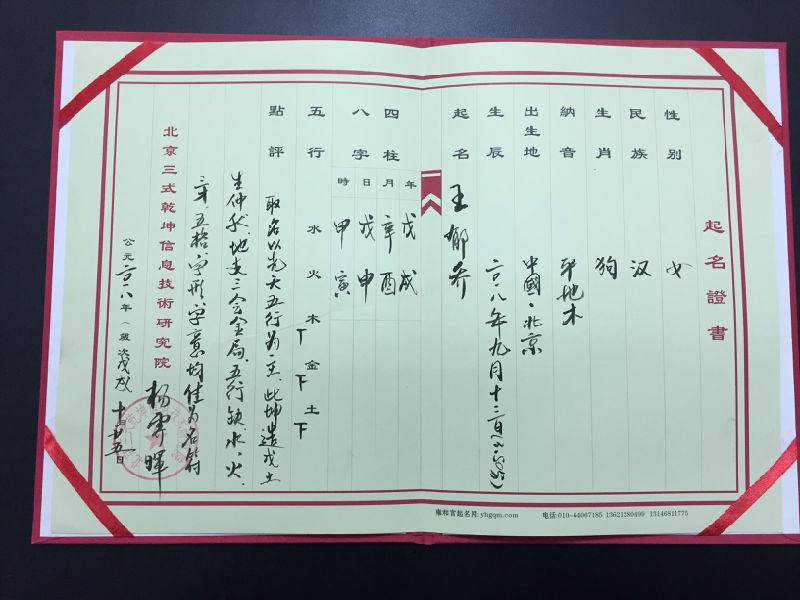 起名證書
性别 女
民族 汉
生肖 狗
納音 平地木
出生地 中國·北京
生辰 二〇一八年九月十三日
起名 王郁乔
四柱 年 月 日 時
八字 戊戌 辛酉 戊申 甲寅
五行 水火木金土
點評 取名以先天五行为主,此坤造戊土
生仲秋,地支三会金局,五行缺水、火,
三才、五格、字形、字意均佳为名符
北京三式乾坤信息技術研究院
公元二〇一八年(歲次戊戌
雍和宫起名网:yhgqm.com 电话:010-44067185 13621280499 13146811775